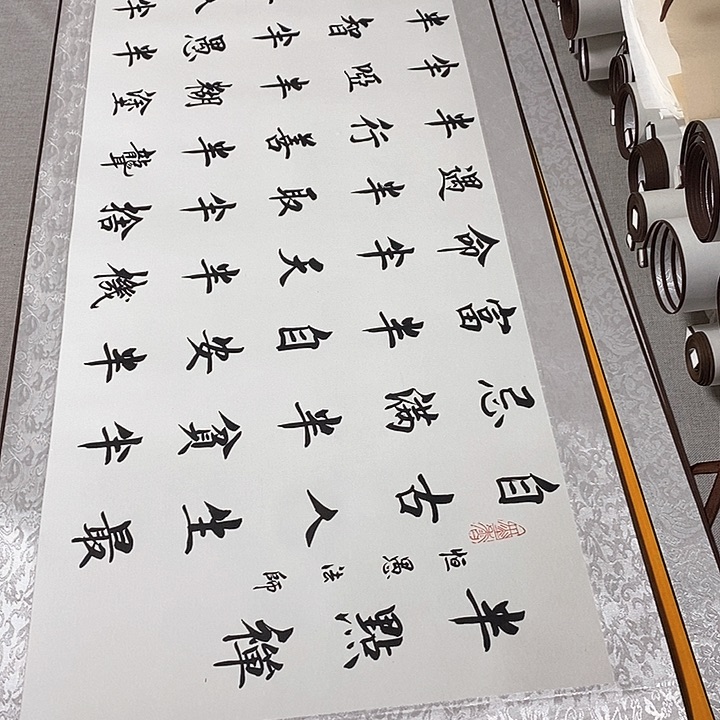 半點禪
恒愚法師
自古人生最
忌滿半貧半
富半自安半
命半天半機
遇半取半捨
半行善半聾
半啞半糊塗
半智半愚半